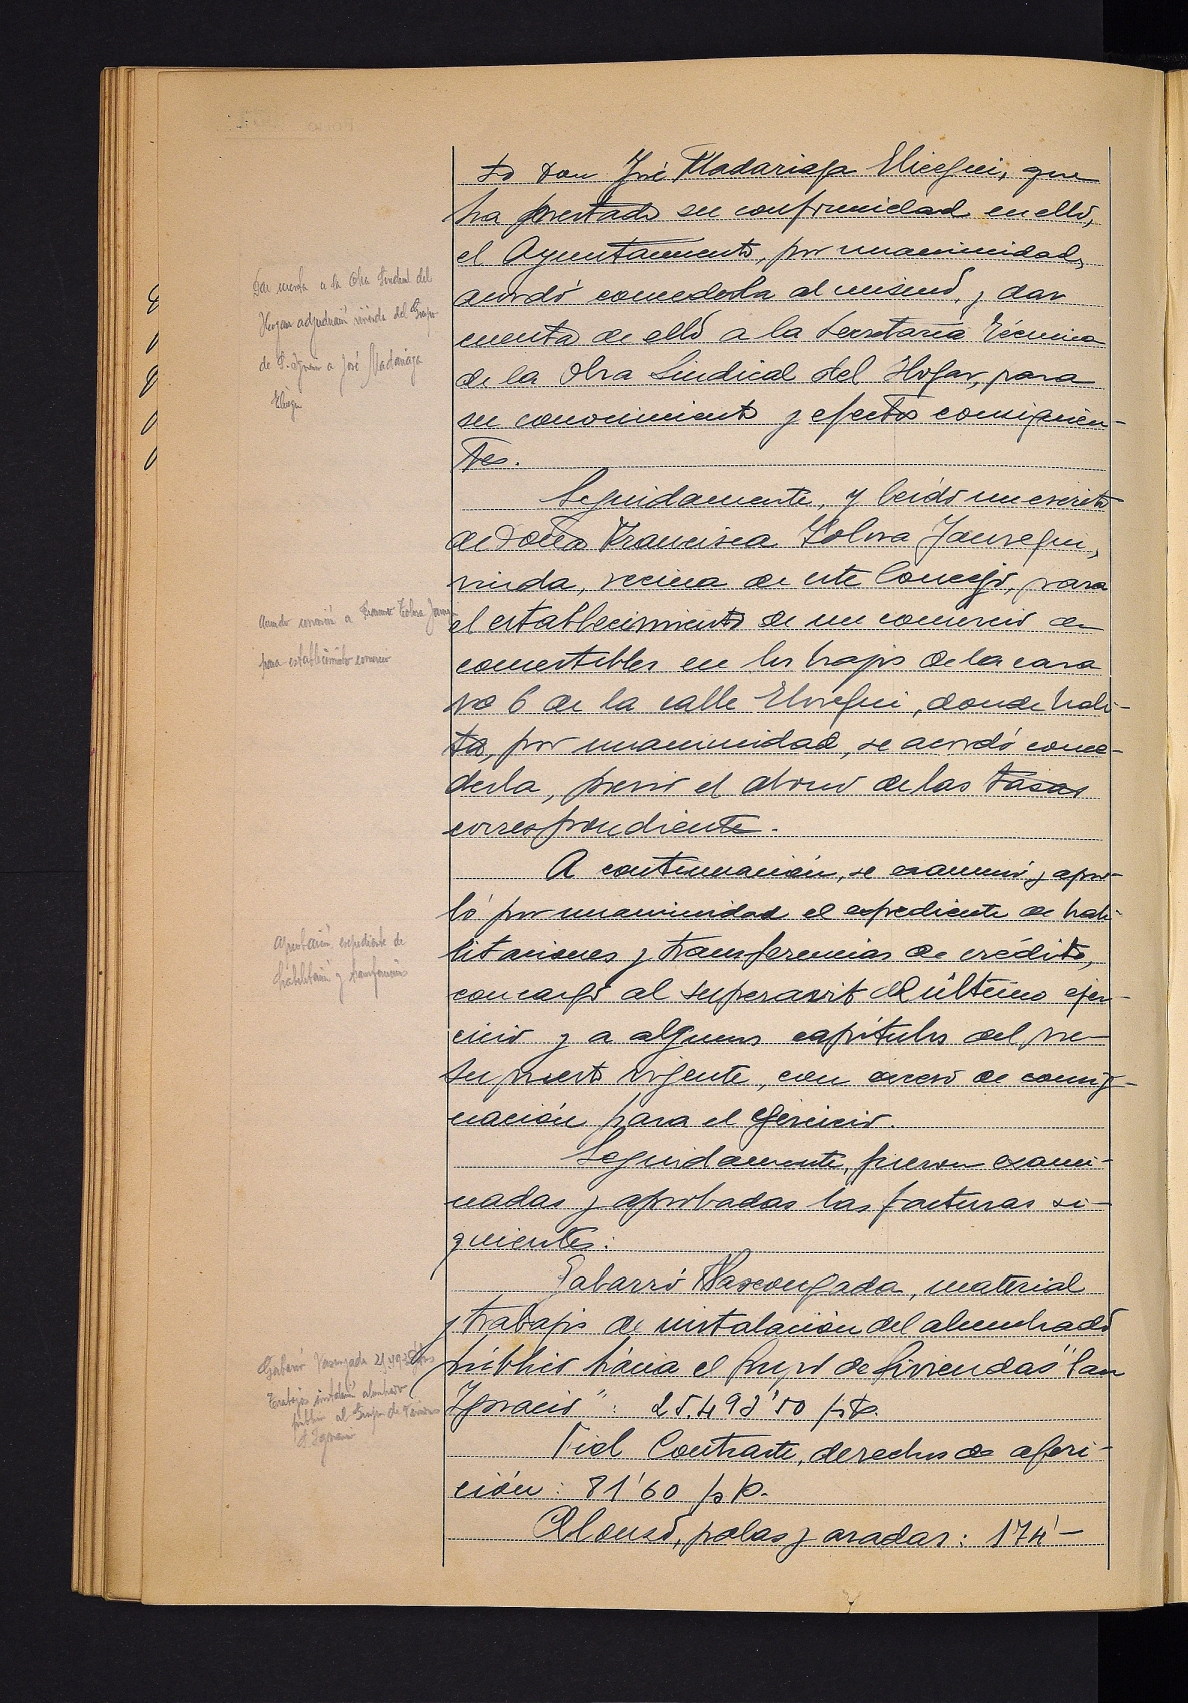 to don José Madariaga Elicegui, que
ha prestado su conformidad en ello,
el Ayuntamiento, por unanimidad,
acordó concederla al mismo, y dar
cuenta de ello a la Secretaría Técnica
de la Obra Sindical del Hogar, para
su conocimiento y efectos consiguien-
tes.
Seguidamente, y leído un escrito
de doña Francisca Tolosa Jauregui,
viuda, vecina de este Concejo, para
el establecimiento de un comercio de
comestibles en los bajos de la casa
nº 6 de la calle Eloregui, donde habi-
ta, por unanimidad, se acordó conce-
derla, previo el abono de las tasas
correspondiente.
A continuación, se examinó y apro-
bó por unanimidad el expediente de habi-
litaciones y transferencias de crédito,
con cargo al superavit del último ejer-
cicio y a algunos capítulos del pre-
supuesto vigente, con exceso de consig-
nación para el ejercicio.
Seguidamente, fueron exami-
nadas y aprobadas las facturas si-
guientes:
Gabarró Vascongada, material
y trabajos de instalación del alumbrado
público hácia el Grupo de Viviendas "San
Ignacio": 25.493'50 pts.
Fiel Contraste, derechos de aferi-
ción: 81'60 pts.
Alonso, palas y azadas: 174'-
Dar cuenta a la Obra Sindical del
Hogar adjudicación vivienda del Grupo
de S. Ignacio a José Madariaga
Elicegui
Acuerdo concesión a Francisca Tolosa Jauregui
para establecimiento comercio
Aprobación expediente de
habilitación y transferencias
Gabarró Vascongada
Trabajos instalación alumbrado
público al Grupo de Viviendas
S. Ignacio